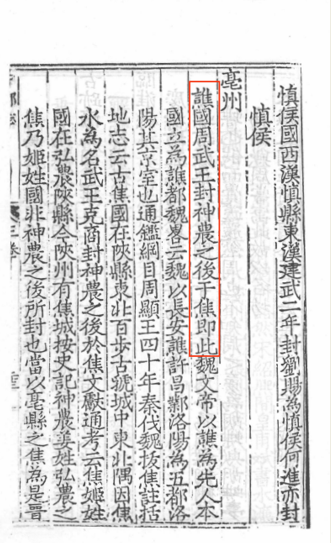 慎侯國西漢慎縣東漢建武二年封劉賜為慎侯何進亦封
慎侯
亳州
譙國周武王封神農之後于焦即此魏文帝以譙為先人本
國立為譙都魏畧云魏以長安譙許昌鄴洛陽為五都洛
陽其京室也通鑑綱目周顯王四十年秦伐魏拔焦註括
地志云古焦國在陝縣東北百步古虢城中東北隅因焦
水為名武王克商封神農之後於焦文獻通考云焦姬姓
國在弘農陝縣今陝州有焦城按史記神農姜姓弘農之
焦乃姬姓國非神農之後所封也當以亳縣之焦為是晋